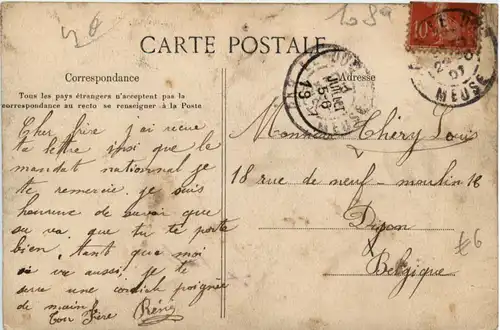 CARTE POSTALE
Correspondance
Tous les pays étrangers n'acceptent pas la
correspondance au recto se renseigner à la Poste
Cher frère j'ai recue
ta lettre insi que la
mandat nationnal je
te remercie. je suis
heureuse de savoir que
sa va. que tu te porte
bien. tant que moi
sa va aussi; je te
serre une cordial poignée
de main
Ton Frère René
Adresse
Monsieur Théry Louis
18 rue de neuf-moulin 18
Dison
Belgique
MEUSE
MEUSE
10
£6